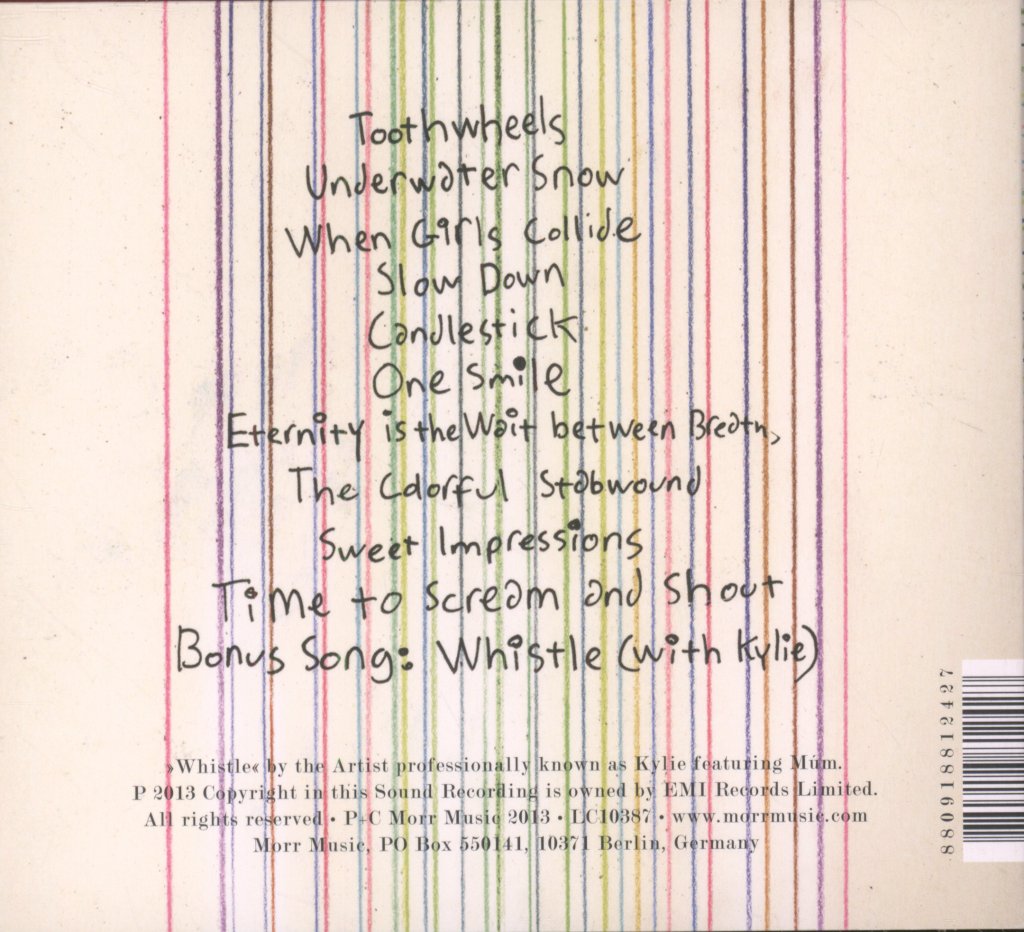 Toothwheels
Underwater Snow
When Girls Collide
Slow Down
Candlestick
One Smile
Eternity is the Wait between Breath,
The Colorful Stabwound
Sweet Impressions
Time to Scream and Shout
Bonus Song: Whistle (with Kylie)
»Whistle« by the Artist professionally known as Kylie featuring Múm.
P 2013 Copyright in this Sound Recording is owned by EMI Records Limited.
All rights reserved • P+C Morr Music 2013 • LC10387 • www.morrmusic.com
Morr Music, PO Box 550141, 10371 Berlin, Germany
880918812427